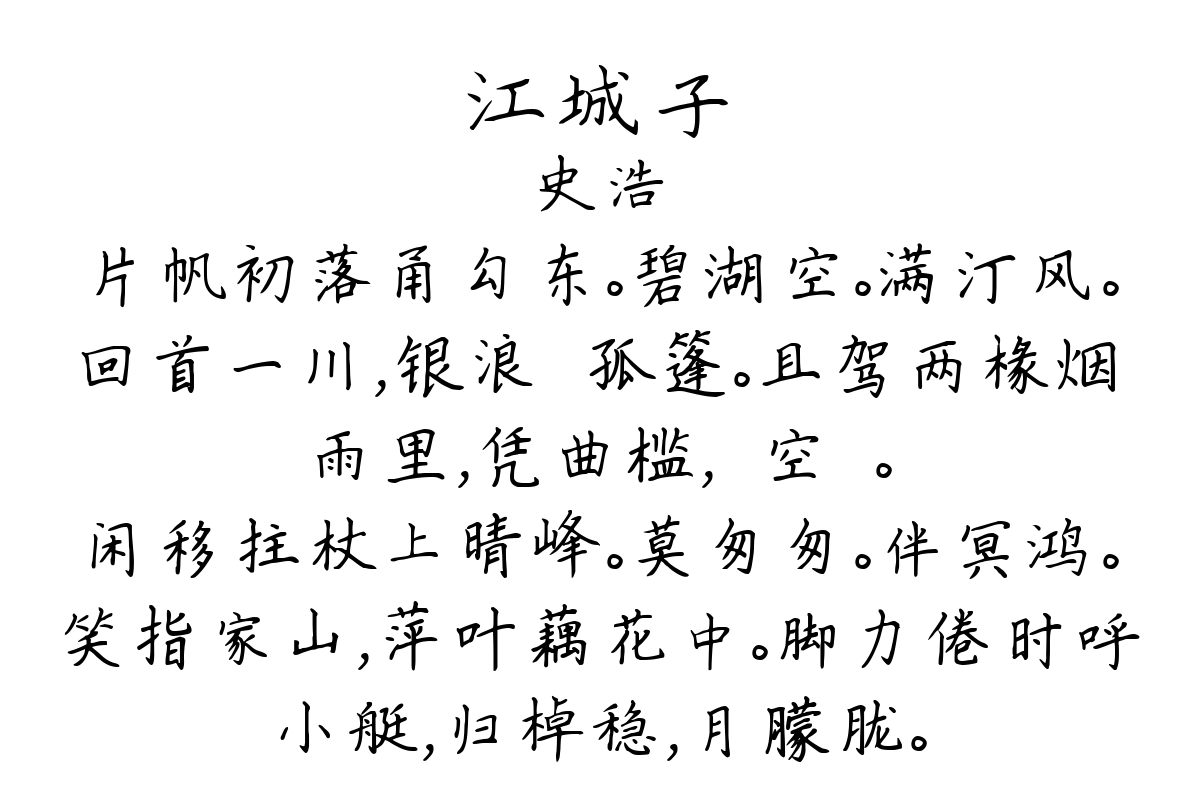 江城子
史浩
片帆初落甬勾东。碧湖空。满汀风。
回首一川,银浪 孤篷。且驾两椽烟
雨里,凭曲槛, 空 。
闲移拄杖上晴峰。莫匆匆。伴冥鸿。
笑指家山,萍叶藕花中。脚力倦时呼
小艇,归棹稳,月朦胧。